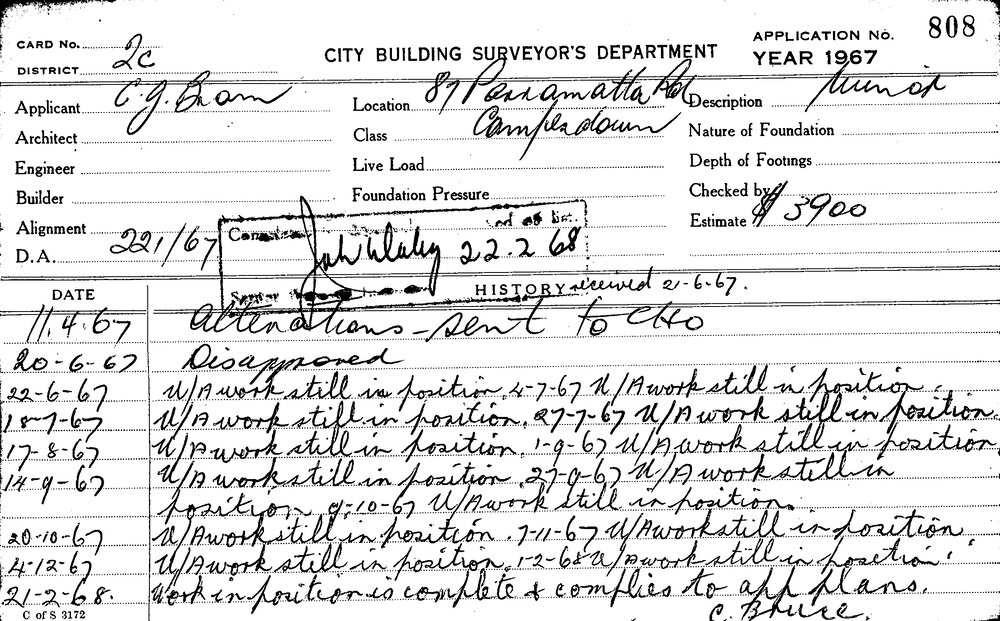 CARD No. 2c
DISTRICT
CITY BUILDING SURVEYOR'S DEPARTMENT
APPLICATION No. 808
YEAR 1967
Applicant C. J.
Location 87 Parramatta Rd
Camperdown
Description Minor
Architect
Class
Nature of Foundation
Engineer
Live Load
Depth of Footings
Builder
Foundation Pressure
Checked by
Alignment
Estimate $ 3900
D.A. 221/67
22.2 68
DATE
HISTORY received 21-6-67.
11.4.67 Alterations - sent to CHO
20-6-67 Disapproved
22-6-67 U/A work still in position. 4-7-67 U/A work still in position.
18-7-67 U/A work still in position. 27-7-67 U/A work still in position.
17-8-67 U/A work still in position. 1-9-67 U/A work still in position.
14-9-67 U/A work still in position. 27-9-67 U/A work still in
position. 9-10-67 U/A work still in position.
20-10-67 U/A work still in position. 7-11-67 U/A work still in position
4-12-67 U/A work still in position. 1-2-68 U/A work still in position.
21-2-68. Work in position is complete & complies to app plans.
C. Bruce.
C of S 3172